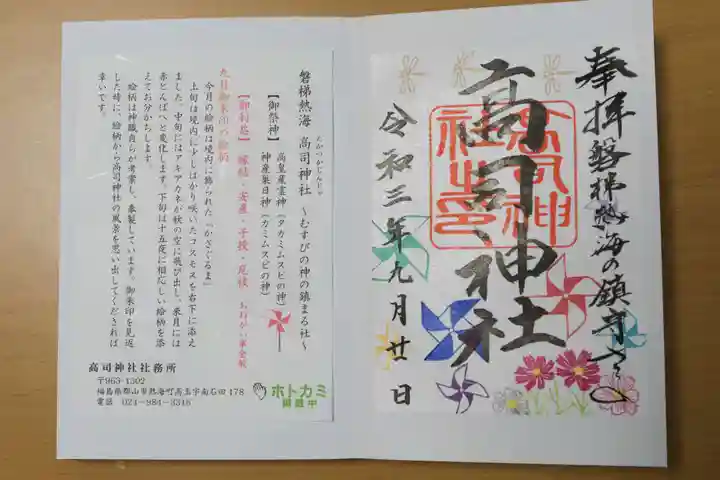 奉拝磐梯熱海の鎮守
高司神社
高司神社之印
令和三年九月廿日
磐梯熱海 高司神社 ~むすびの神の鎮まる社~
たかつかじんじゃ
【御祭神】 高皇産霊神(タカミムスビの神)
神産巣日神(カミムスビの神)
【御利益】 縁結・安産・子授・厄祓
九月御朱印の絵柄
今月の絵柄は境内に飾られた『かざぐるま』
上旬は境内に少しばかり咲いたコスモスを右下に添え
ました。中旬にはアキアカネが秋の空に飛び出し、来月には
赤とんぼへと変化します。下旬は十五夜に相応しい絵柄を添
えてお分かちします。
絵柄は神職自らが考案し、奉製しています。御朱印を見返
した時に、絵柄から高司神社の風景を思い出してくだされば
幸いです。
高司神社社務所
〒963-1302
福島県郡山市熱海町高玉字南石田178
電話 024-984-3316
ホトカミ
掲載中